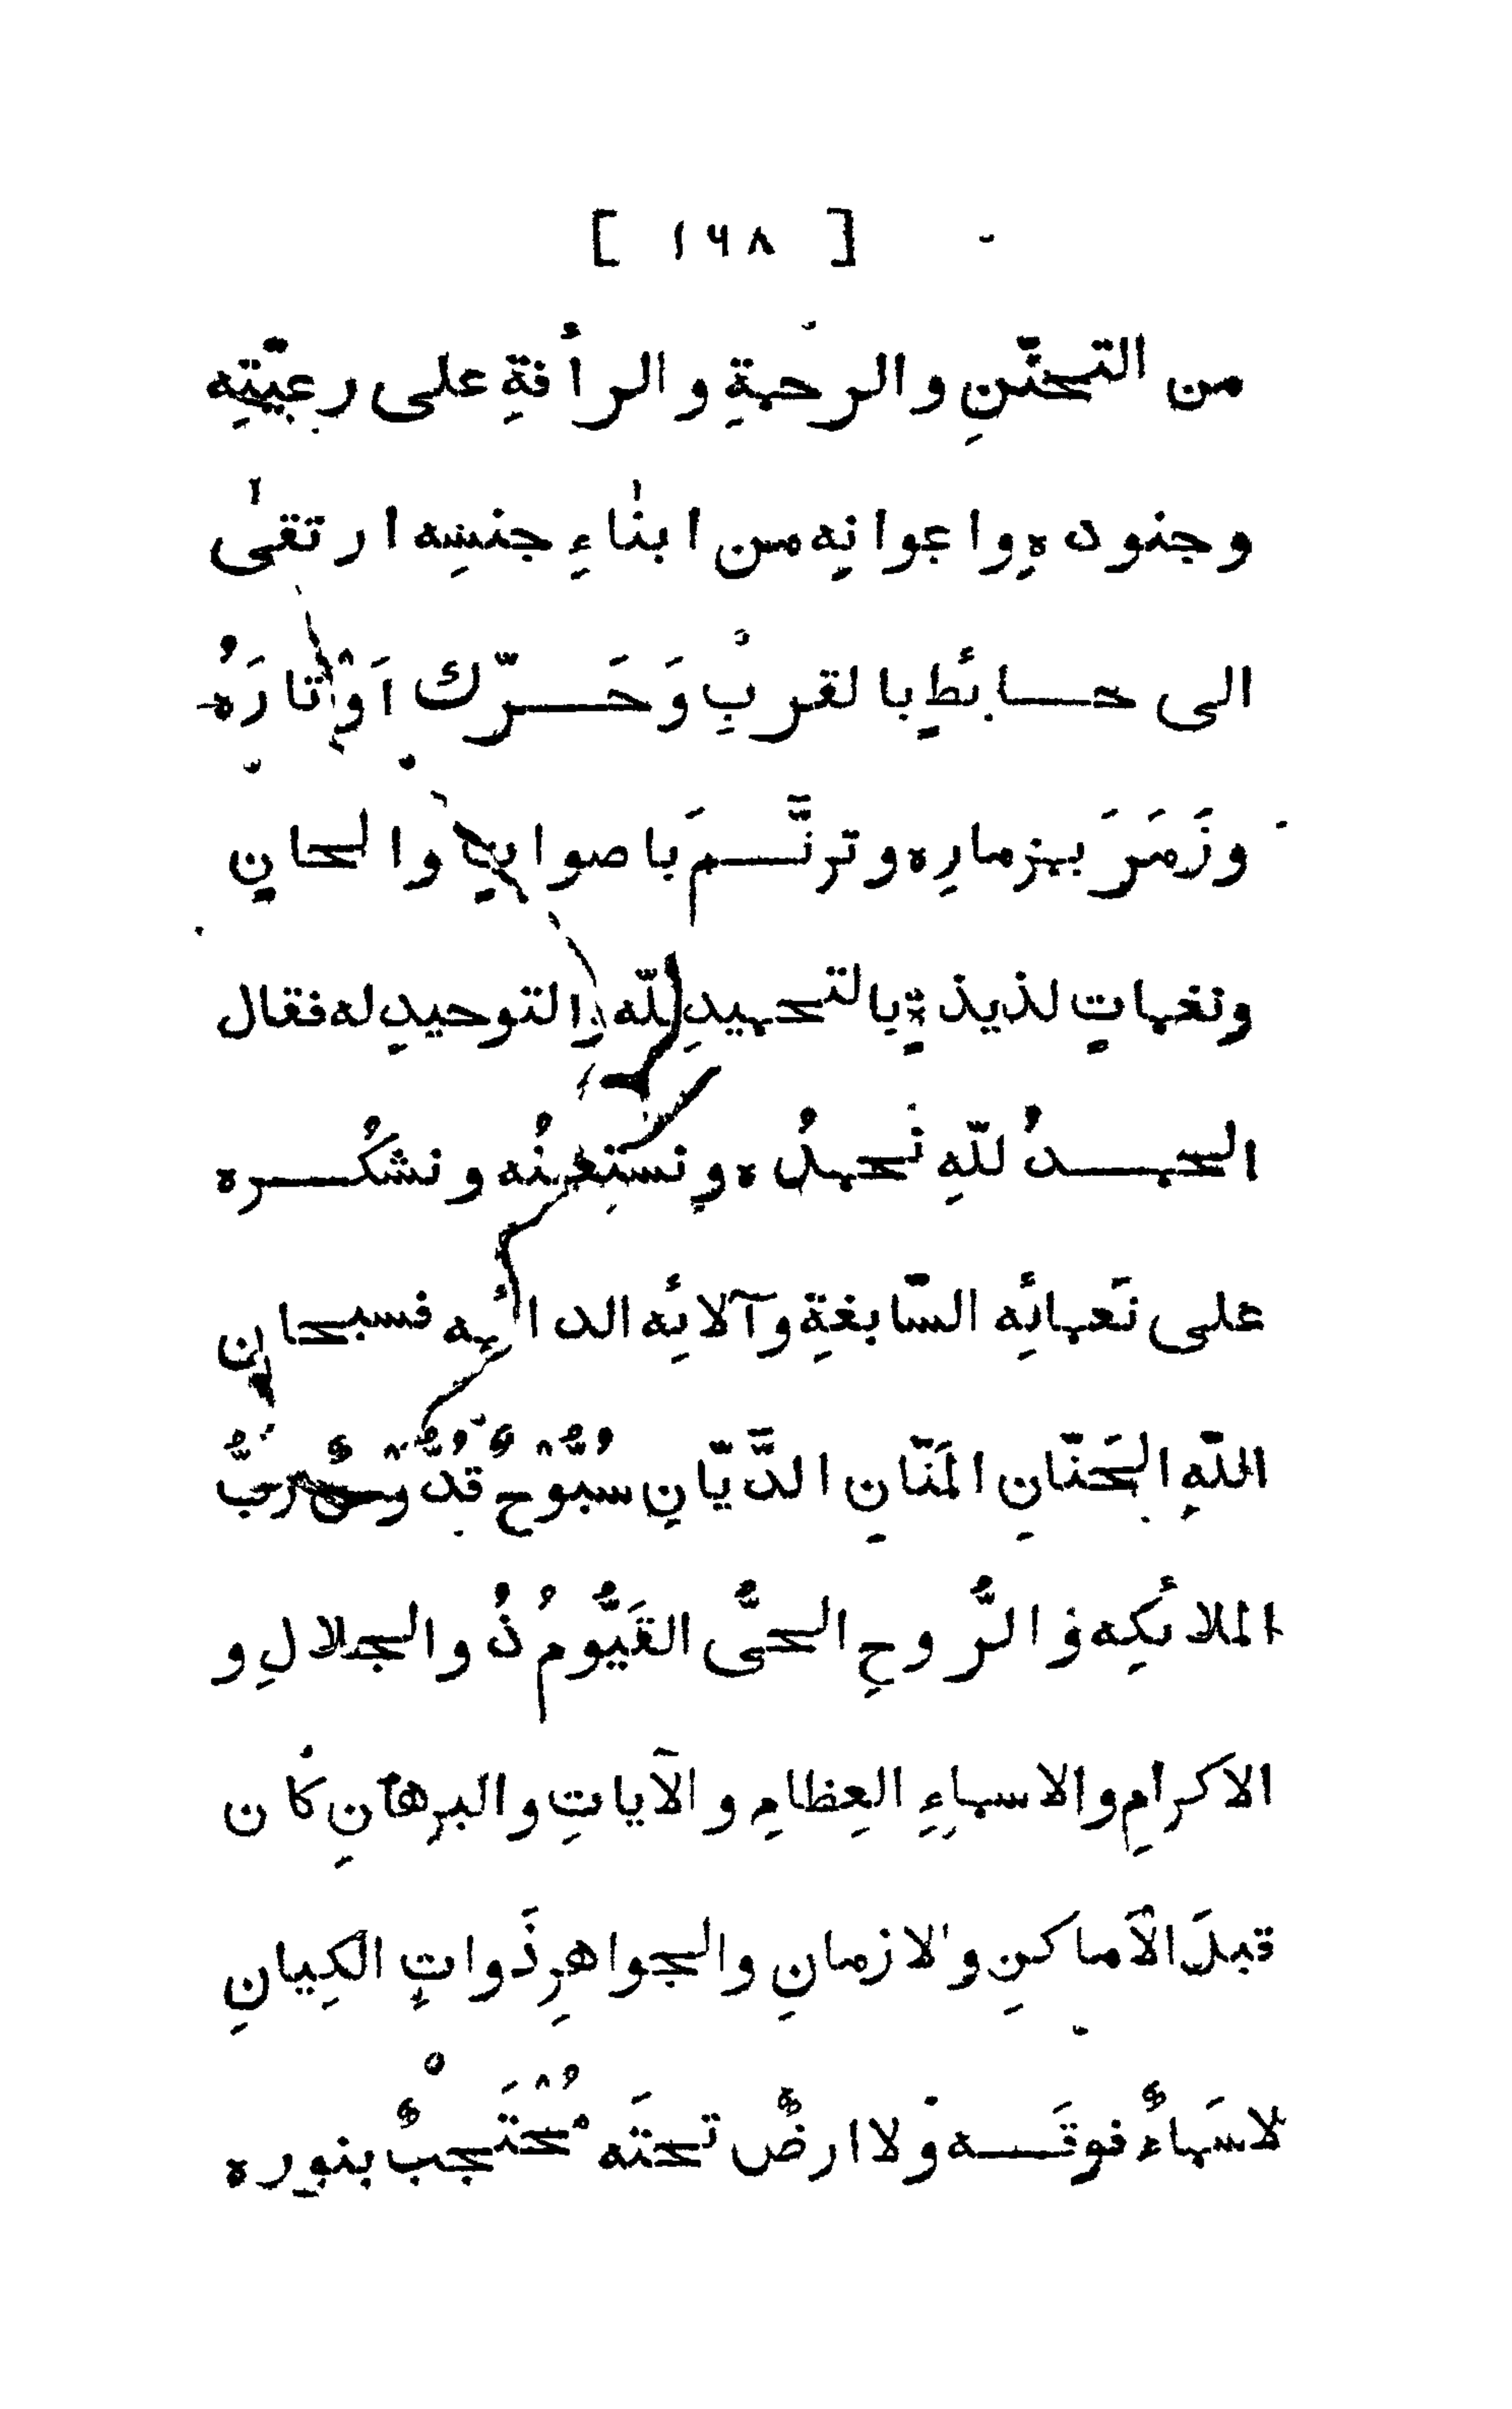 [ ١٦٨ ]
من التحنّنِ والرحمةِ والرأفةِ على رعيّتِه
وجنودهِ واعوانِه من ابناءِ جنسِه ارتقىٰ
الى حائطٍ بالقربِ وَحَرّك اَوْتارَهُ
وزَمَرَ بمزمارِه وترنَّمَ باصواتٍ والحانٍ
ونغماتٍ لذيذةٍ بالتحميدِ للّه والتوحيدِ له فقال
الحمدُ للّهِ نَحمدُه ونستعينُه ونشكُره
على نَعمائِه السّابغةِ وآلائِه الدائمِه فسبحان
اللّهِ الحَنّانِ المَنّانِ الدَّيّانِ سُبُّوْحٌ قُدُّوْسٌ رَبُّ
الملائكِه والرُّوحِ الحىُّ القَيُّومُ ذُوالجلالِ و
الاكرامِ والاسماءِ العِظامِ والآياتِ والبرهانِ كان
قبلَ الاَماكنِ والازمانِ والجواهرِ ذَواتِ الكِيانِ
لاسَماءٌ فوقَه ولا ارضٌ تحتَه مُحْتَجبٌ بنوره